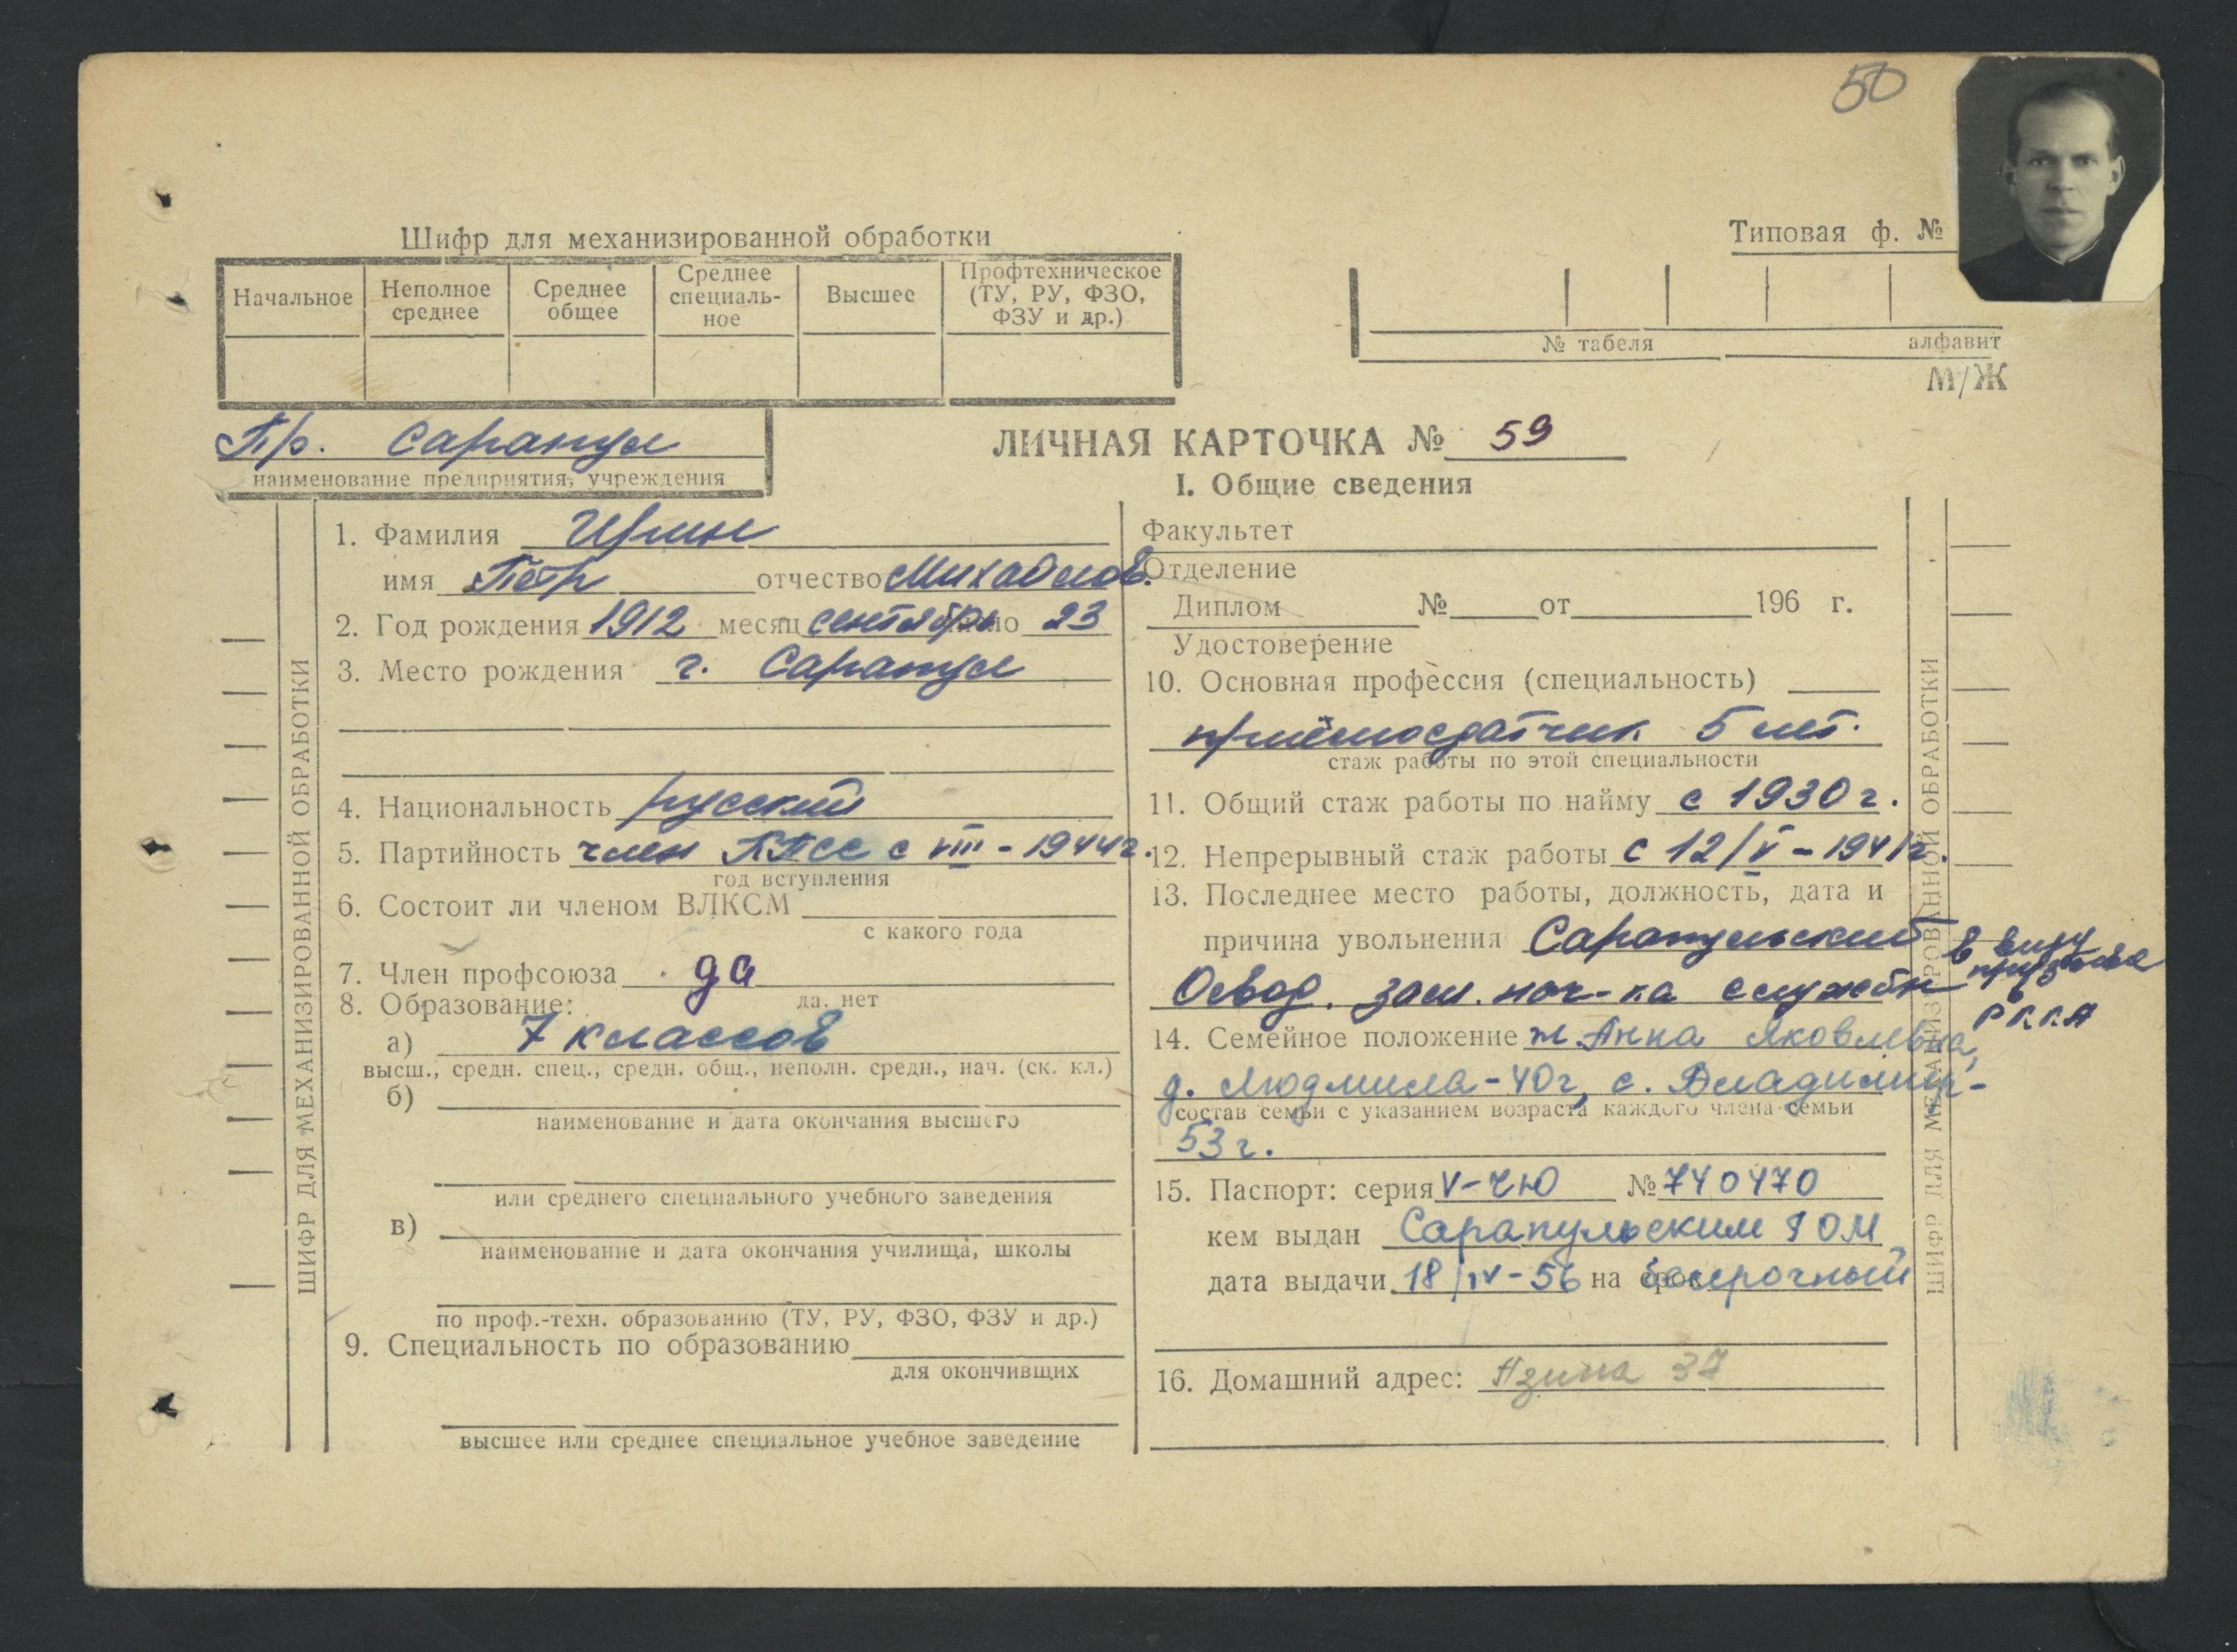 50
Шифр для механизированной обработки
Типовая ф. №
Начальное
Неполное среднее
Среднее общее
Среднее специаль-
ное
Высшее
Профтехническое
(ТУ, РУ, ФЗО,
ФЗУ и др.)
№ табеля
алфавит
М/Ж
Пр. Сарапул
наименование предприятия, учреждения
ЛИЧНАЯ КАРТОЧКА № 59
I. Общие сведения
1. Фамилия
имя Пётр отчество Михайлов.
2. Год рождения 1912 месяц сентябрь число 23
3. Место рождения г. Сарапул
4. Национальность русский
5. Партийность член КПСС с VIII - 1944г.
год вступления
6. Состоит ли членом ВЛКСМ
с какого года
7. Член профсоюза да
да. нет
8. Образование:
а) 7 классов
высш., средн. спец., средн. общ., неполн. средн., нач. (ск. кл.)
б)
наименование и дата окончания высшего
или среднего специального учебного заведения
в)
наименование и дата окончания училища, школы
по проф.-техн. образованию (ТУ, РУ, ФЗО, ФЗУ и др.)
9. Специальность по образованию
для окончивщих
высшее или среднее специальное учебное заведение
Факультет
Отделение
Диплом № от 196 г.
Удостоверение
10. Основная профессия (специальность)
приёмосдатчик 5 лет.
стаж работы по этой специальности
11. Общий стаж работы по найму с 1930 г.
12. Непрерывный стаж работы с 12/V - 1941г.
13. Последнее место работы, должность, дата и
причина увольнения Сарапульский
Освод. зам. нач-ка службы
в виду
призыва
в
РККА
14. Семейное положение ж Анна Яковлевна,
д. Людмила - 40г, с. Владимир -
состав семьи с указанием возраста каждого члена семьи
53 г.
15. Паспорт: серия V-ЧЮ № 740470
кем выдан Сарапульским ГОМ
дата выдачи 18/IV - 56 на срок бессрочный
16. Домашний адрес: Азина 37
ШИФР ДЛЯ МЕХАНИЗИРОВАННОЙ ОБРАБОТКИ
ШИФР ДЛЯ МЕХАНИЗИРОВАННОЙ ОБРАБОТКИ